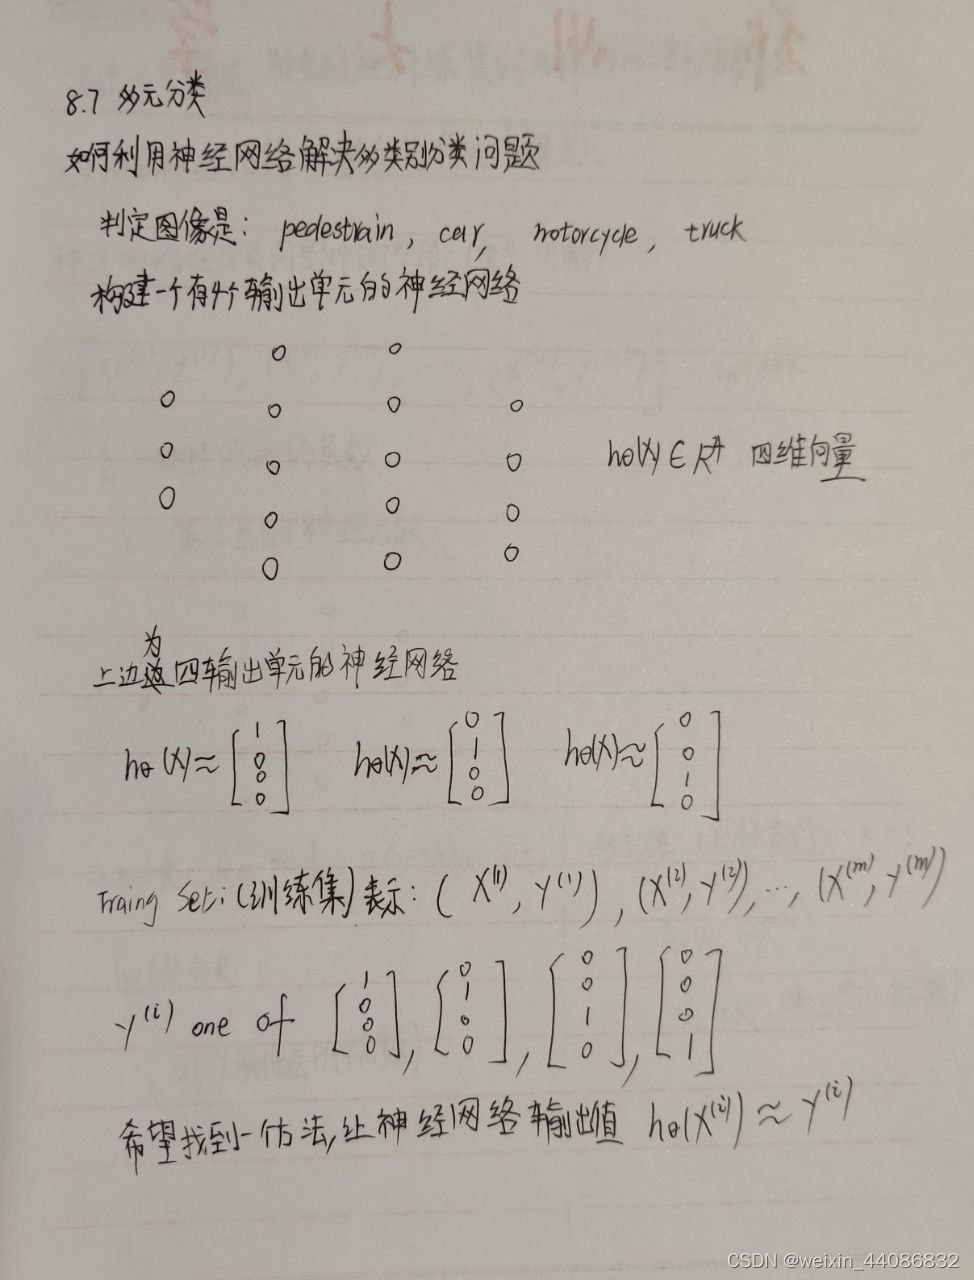 8.7 多元分类
如何利用神经网络解决多类别分类问题
判定图像是: pedestrain, car, motorcycle, truck
构建一个有4个输出单元的神经网络
hθ(X) ∈ R⁴ 四维向量
为
上边四输出单元的神经网络
hθ(X) ≈ [1 0 0 0] hθ(X) ≈ [0 1 0 0] hθ(X) ≈ [0 0 1 0]
Traing Set: (训练集) 表示: (X⁽¹⁾, Y⁽¹⁾), (X⁽²⁾, Y⁽²⁾), ..., (X⁽ᵐ⁾, Y⁽ᵐ⁾)
Y⁽ⁱ⁾ one of [1 0 0 0], [0 1 0 0], [0 0 1 0], [0 0 0 1]
希望找到一个方法,让神经网络输出值 hθ(X⁽ⁱ⁾) ≈ Y⁽ⁱ⁾
CSDN @weixin_44086832